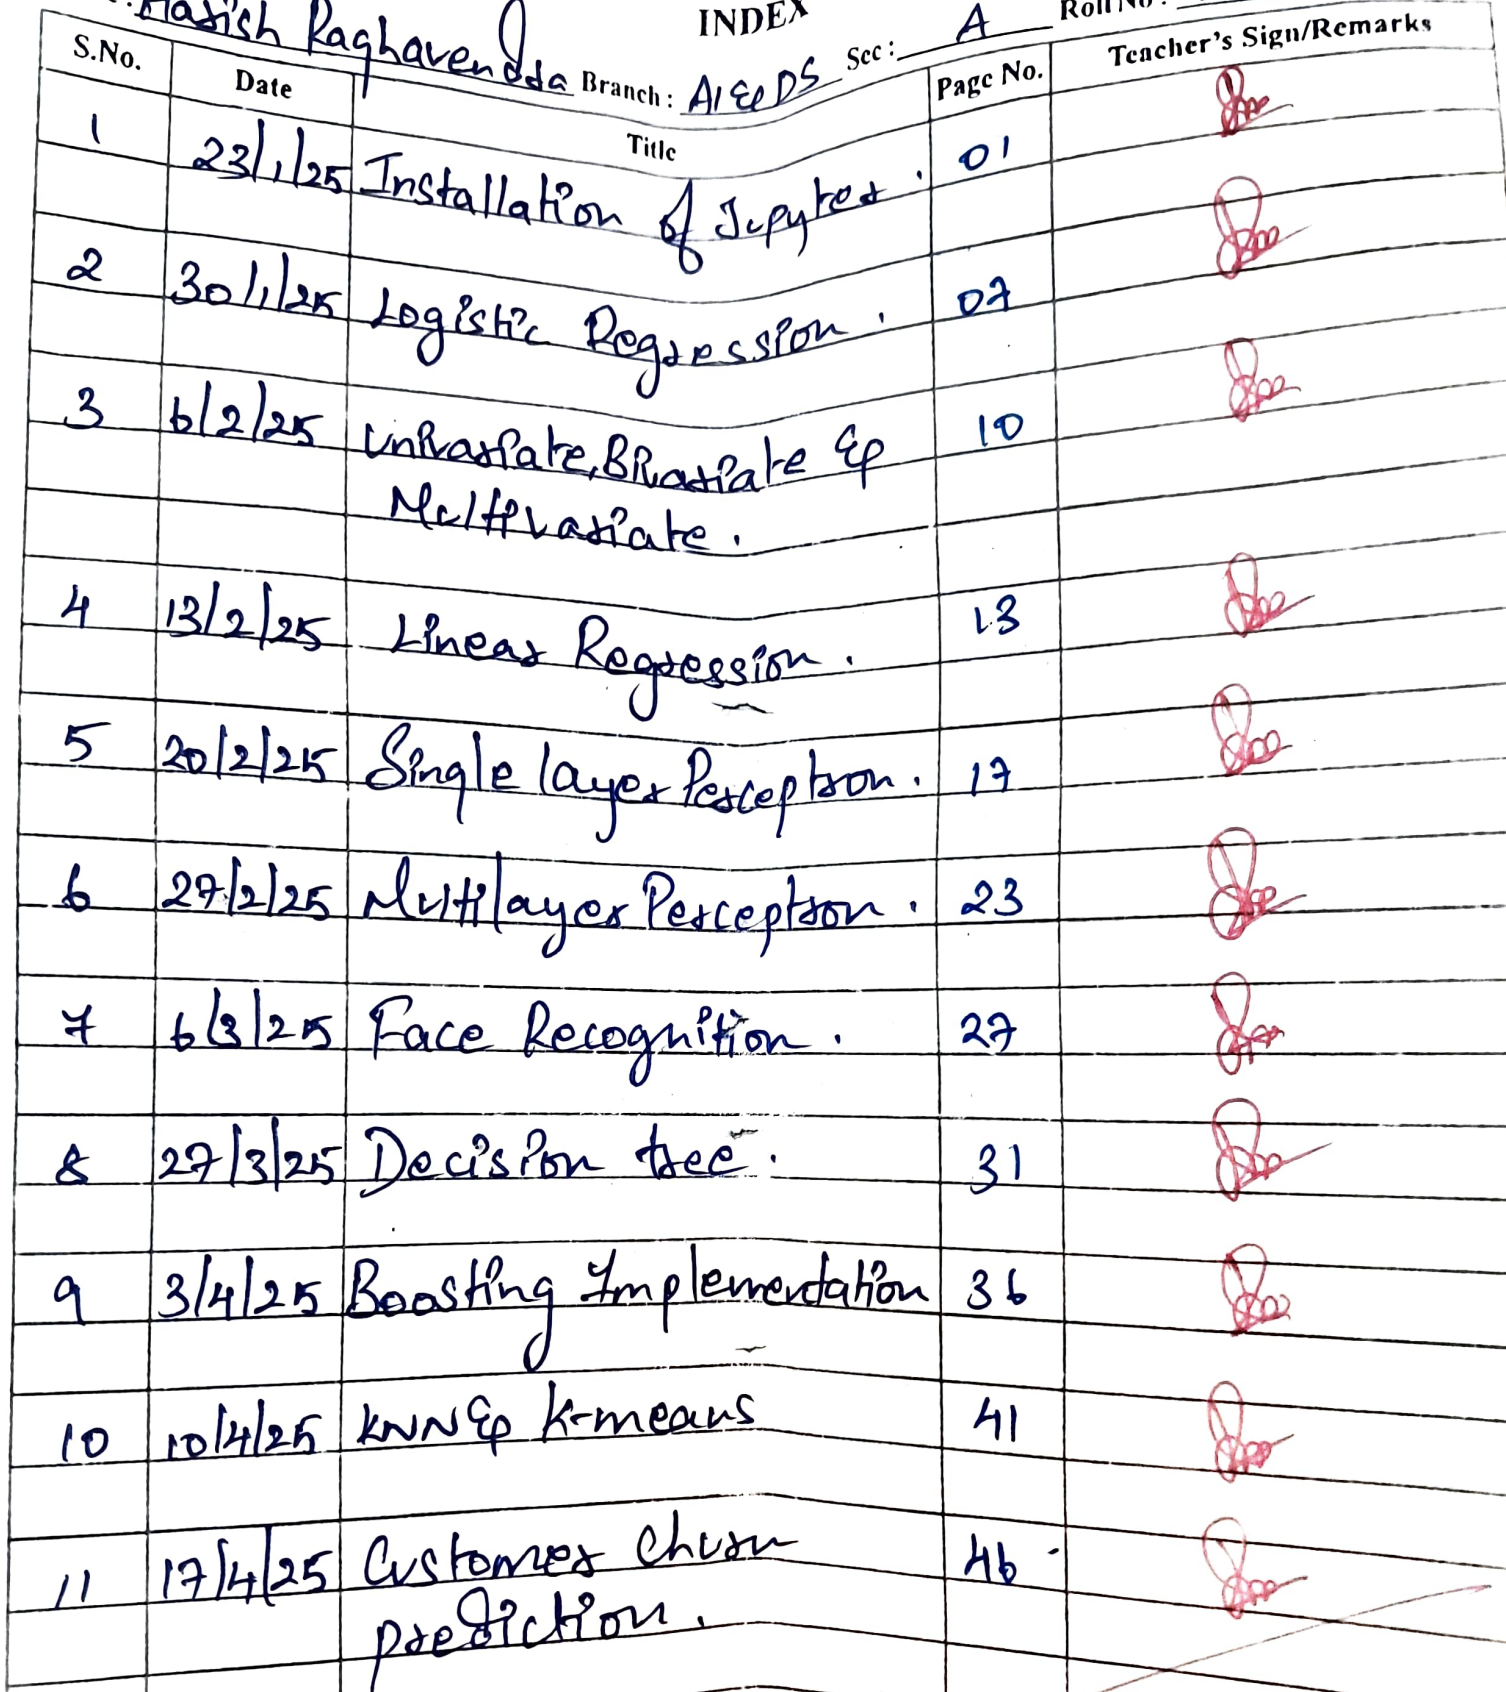 INDEX
Harish Raghavendra Branch: AI & DS Sec: A Roll No:
S.No. Date Title Page No. Teacher's Sign/Remarks
1 23/1/25 Installation of Jupyter. 01
2 30/1/25 Logistic Regression. 07
3 6/2/25 Univariate, Bivariate & 10
Multivariate.
4 13/2/25 Linear Regression. 13
5 20/2/25 Single layer Perceptron. 17
6 27/2/25 Multilayer Perceptron. 23
7 6/3/25 Face Recognition. 27
8 27/3/25 Decision tree. 31
9 3/4/25 Boosting Implementation 36
10 10/4/25 KNN & K-means 41
11 17/4/25 Customer Churn 46
prediction.